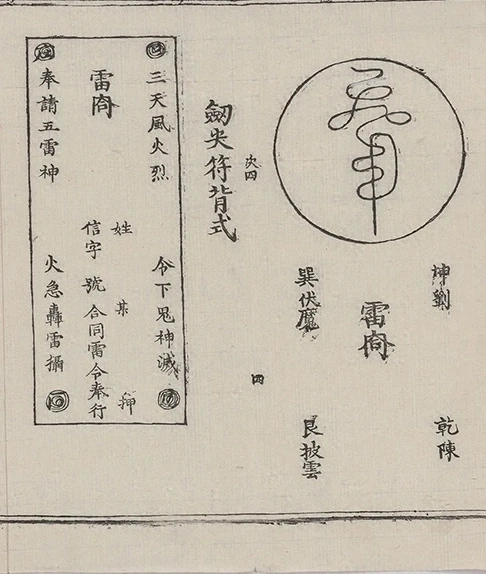 坤劉　乾陳
雷
巽伏魔　艮披雲
四
劒尖符背式
三天風火烈　令下鬼神滅
姓　某　押
雷
信字號合同雷令奉行
奉請五雷神　火急轟雷攝